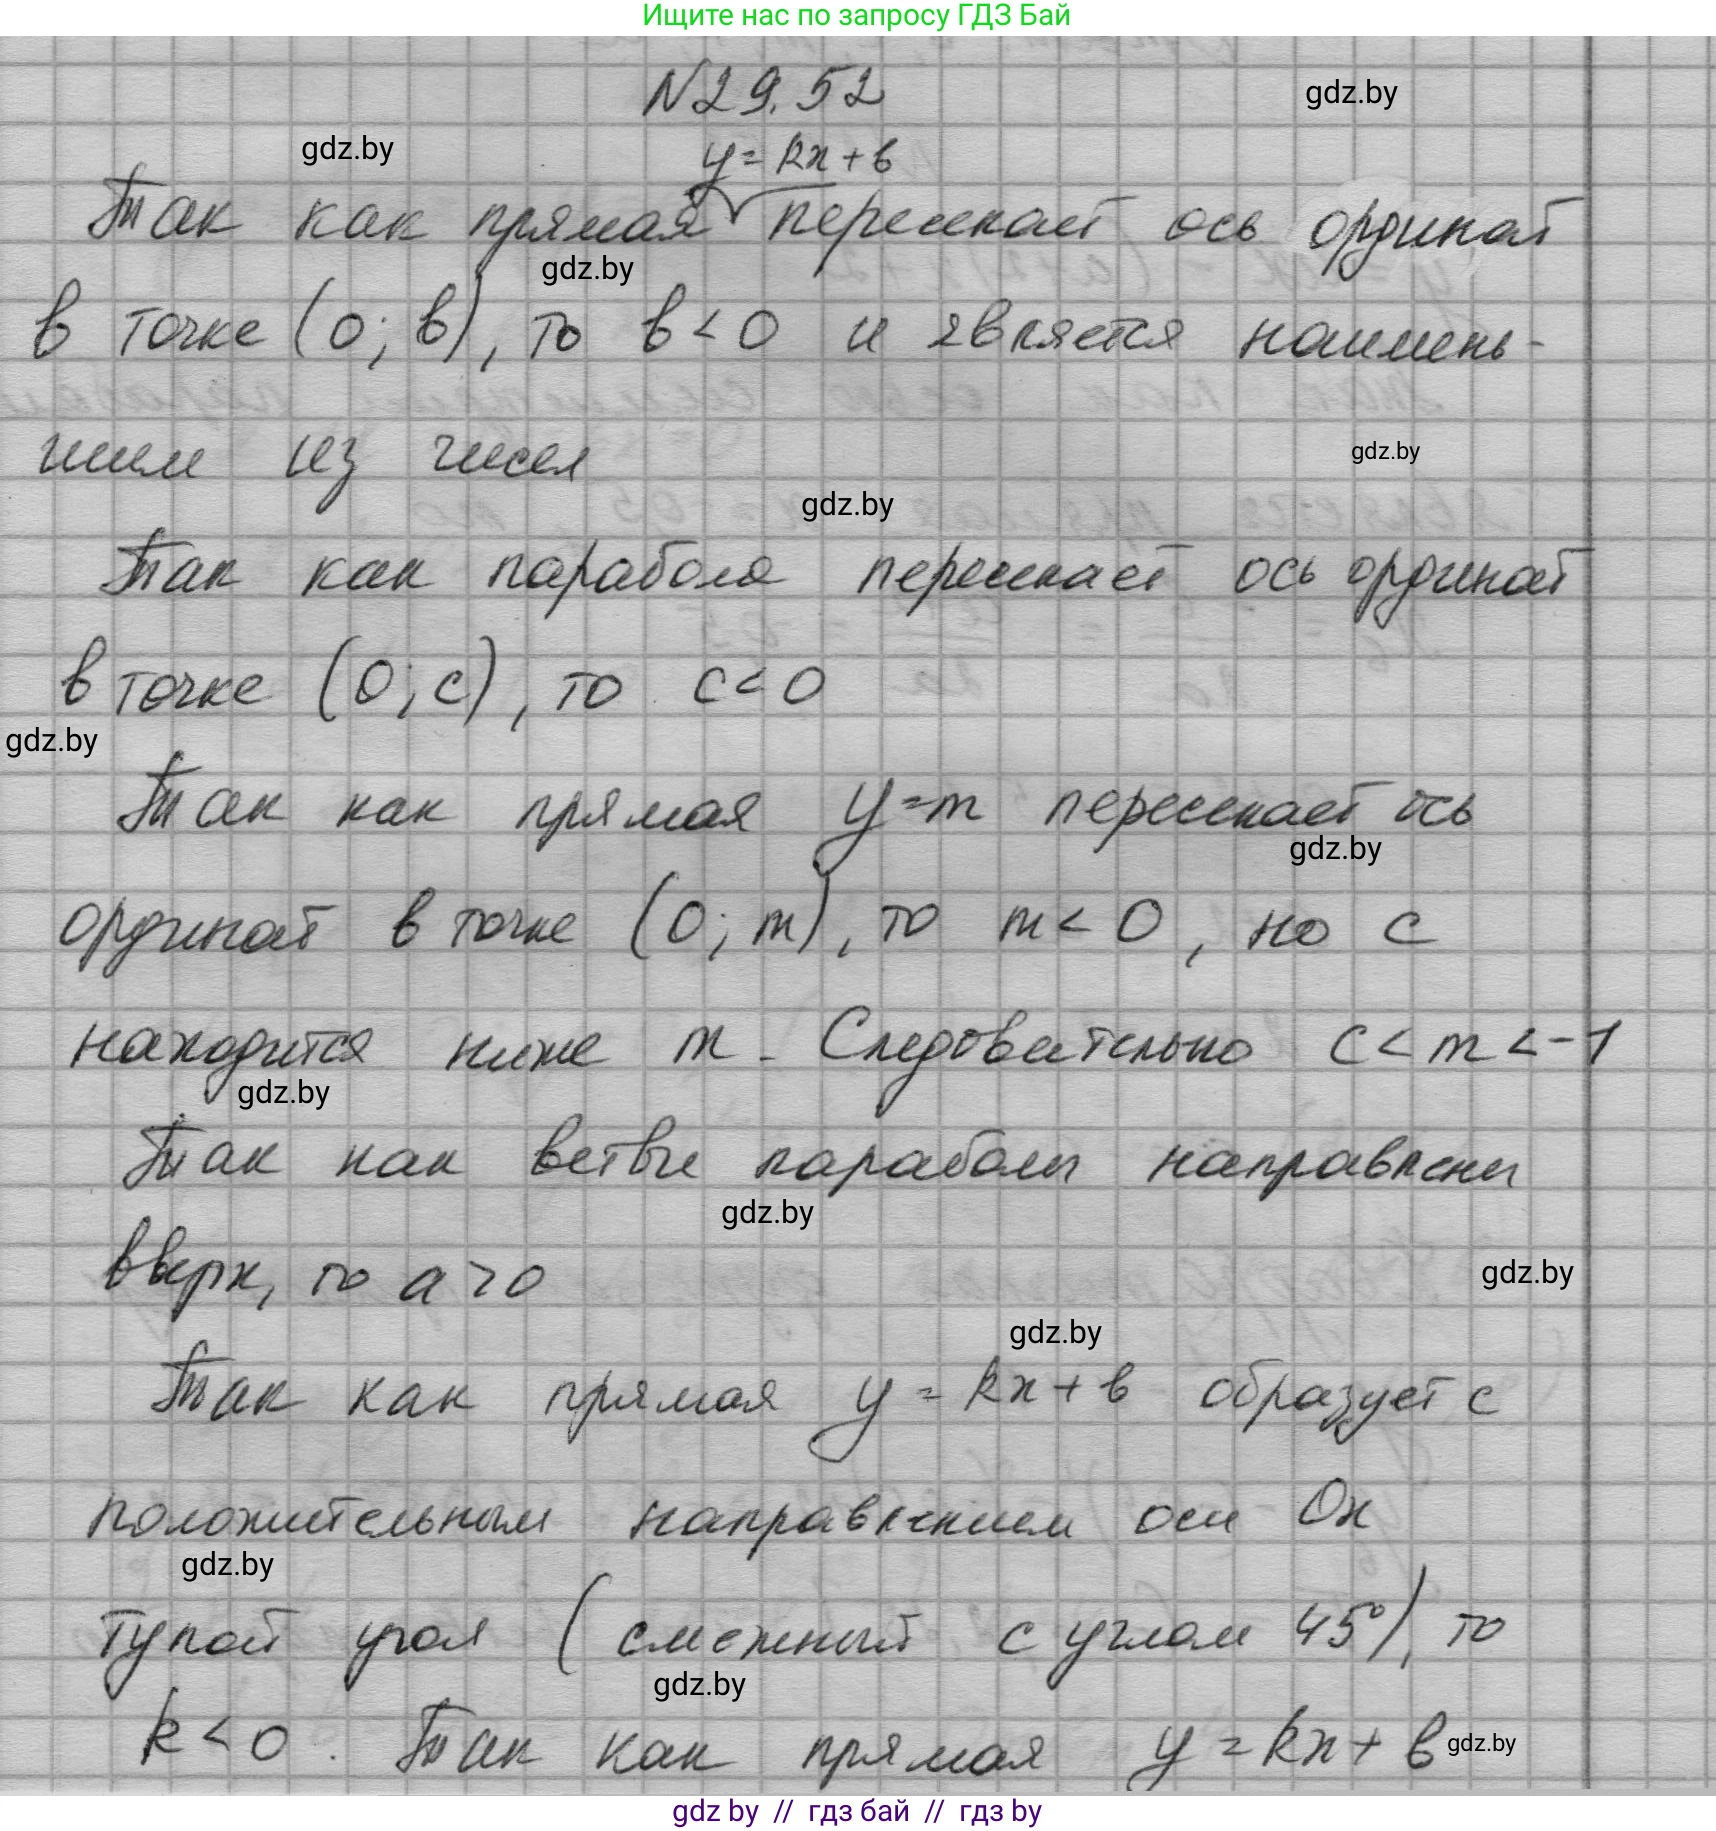 Ищите нас по запросу ГДЗ Бай
N29.52
gdz.by
gdz.by
y = kx + b
Так как прямая пересекает ось ординат
gdz.by
в точке (0; b), то b < 0 и является наимень-
шим из чисел
gdz.by
gdz.by
Так как парабола пересекает ось ординат
в точке (0; c), то c < 0
gdz.by
Так как прямая y = m пересекает ось
gdz.by
ординат в точке (0; m), то m < 0, но c
находится ниже m. Следовательно c < m < -1
gdz.by
Так как ветви параболы направлены
gdz.by
вверх, то a > 0
gdz.by
gdz.by
Так как прямая y = kx + b образует с
положительным направлением оси Ox
gdz.by
тупой угол (смежный с углом 45°), то
gdz.by
k < 0. Так как прямая y = kx + b
gdz.by
gdz by // гдз бай // гдз by